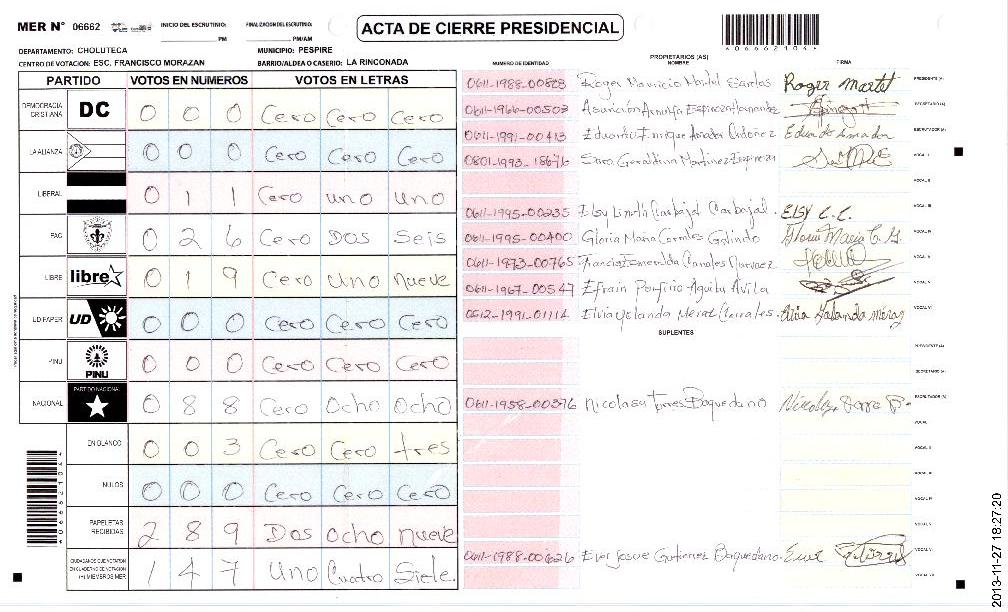 MER N° 06662 INICIO DEL ESCRUTINIO: PM FINALIZACION DEL ESCRUTINIO: PM/AM
ACTA DE CIERRE PRESIDENCIAL
0 6 6 6 2 1 0 4
DEPARTAMENTO: CHOLUTECA MUNICIPIO: PESPIRE
CENTRO DE VOTACION: ESC. FRANCISCO MORAZAN BARRIO/ALDEA O CASERIO: LA RINCONADA
PARTIDO VOTOS EN NUMEROS VOTOS EN LETRAS
DEMOCRACIA CRISTIANA DC 0 0 0 Cero Cero Cero
LA ALIANZA 0 0 0 Cero Cero Cero
LIBERAL 0 1 1 Cero uno Uno
PAC 0 2 6 Cero Dos Seis
LIBRE libre 0 1 9 Cero Uno Nueve
UD/FAPER UD 0 0 0 Cero Cero Cero
PINU PINU 0 0 0 Cero Cero Cero
NACIONAL PARTIDO NACIONAL 0 8 8 Cero Ocho Ocho
EN BLANCO 0 0 3 Cero Cero tres
NULOS 0 0 0 Cero Cero Cero
PAPELETAS RECIBIDAS 2 8 9 Dos Ocho nueve
CIUDADANOS QUE VOTARON EN CUADERNO DE VOTACION (+) MIEMBROS MER 1 4 7 Uno Cuatro Siete.
PROPIETARIOS (AS)
NUMERO DE IDENTIDAD NOMBRE FIRMA
0611-1988-00828 Roger Mauricio Roger Martel PRESIDENTE (A)
0611-1966-00503 Asunción Espinoza SECRETARIO (A)
0611-1991-00413 Eduardo Enrique Amador Ordoñez Eduardo Amador ESCRUTADOR (A)
0801-1993-18676 Geraldina Martinez Espinoza VOCAL I
VOCAL II
0611-1995-00235 Elsy Lineth Carbajal Carbajal. Elsy C.C. VOCAL III
0611-1995-00400 Gloria Maria Corrales Galindo Gloria Maria C. G. VOCAL IV
0611-1973-00765 Francis Esmerelda Canales Narvaez VOCAL V
0611-1967-00547 Efrain Porfirio Aguilar Avila VOCAL V
0512-1991-01114 Elvia Yolanda Meraz Corrales. Elvia Yolanda Meraz VOCAL VI
SUPLENTES
PRESIDENTE (A)
SECRETARIO (A)
0611-1958-00376 Nicolasa Torres Baquedano ESCRUTADOR (A)
VOCAL
VOCAL II
VOCAL III
VOCAL IV
VOCAL V
0611-1988-00626 Ever Josue Gutierrez Baquedano VOCAL VI
VOCAL VII
2013-11-27 18:27:20